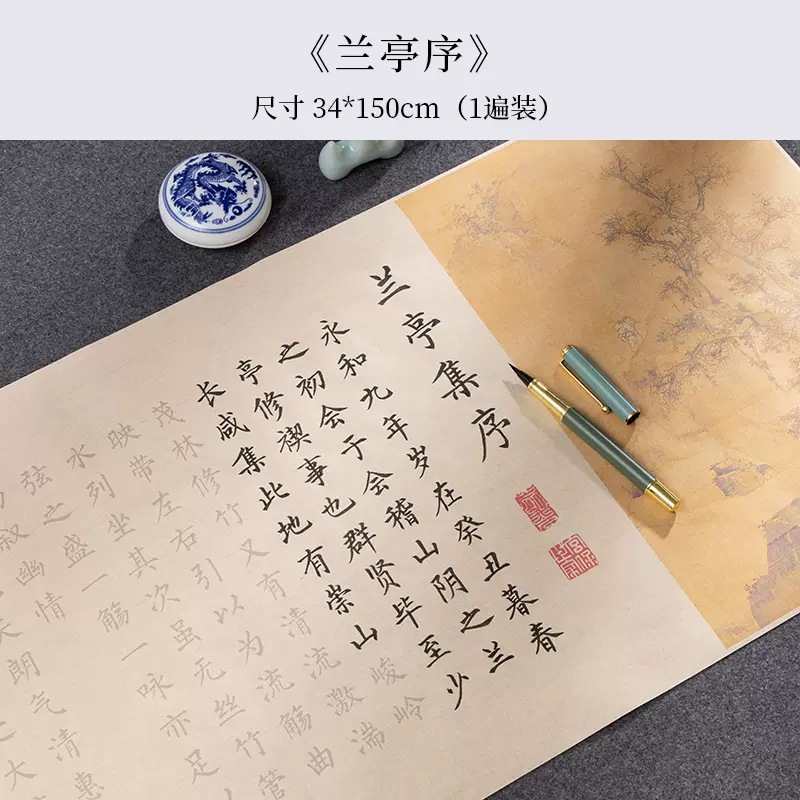 《兰亭序》
尺寸 34*150cm（1遍装）
兰亭集序
永和九年岁在癸丑暮春
之初会于会稽山阴之兰
亭修禊事也群贤毕至少
长咸集此地有崇山峻岭
茂林修竹又有清流激湍
映带左右引以为流觞曲
水列坐其次虽无丝竹管
弦之盛一觞一咏亦足
叙幽情
朗气清惠
之大